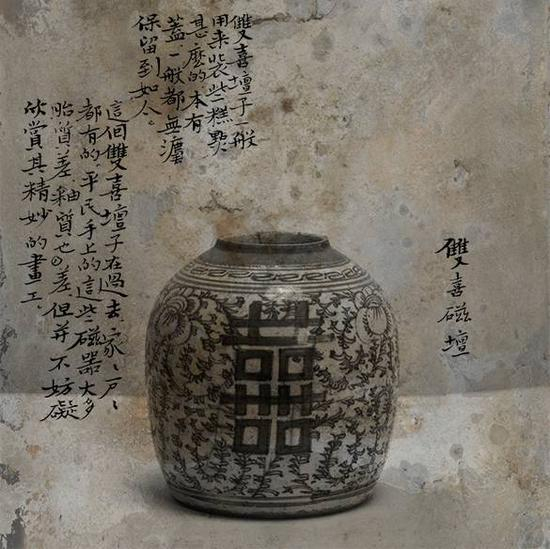 雙喜磁壇
雙喜壇子一般
用来装些糕點
甚麼的本有
蓋，一般都無灋
保留到如今。
這個雙喜壇子在過去家、戶、
都有的，平民手上的這些磁器大多
胎質差，釉質也差但并不妨礙
欣賞其精妙的畫工。
囍